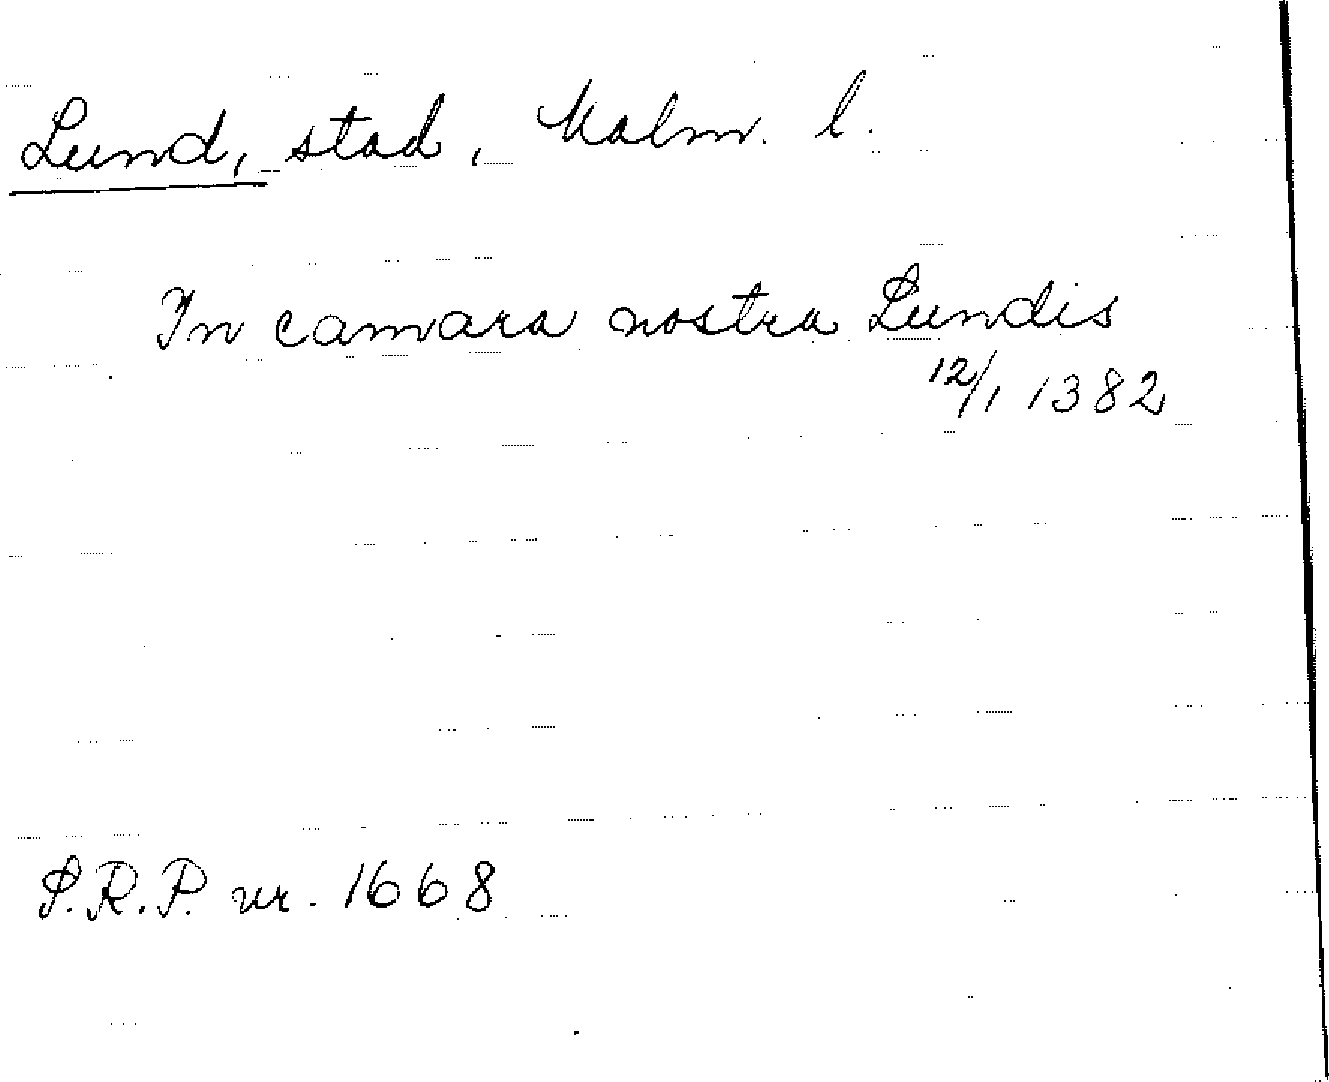 Lund, stad, Malm. l.
In camara nostra Lundis
12/1 1382
S.R.P. nr. 1668